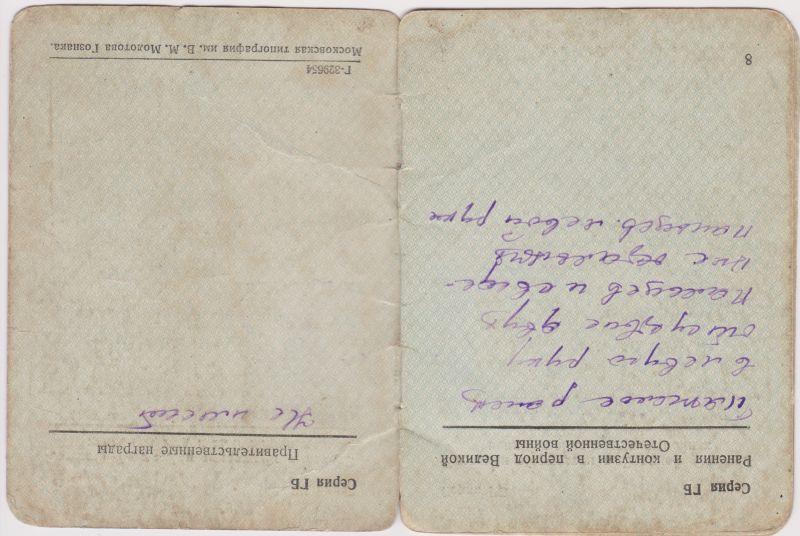 Серия ГБ
Ранения и контузии в период Великой
Отечественной войны
Тяжелое ранен
в левую руку
отсутствие двух
пальцев и сведе-
ние остальных
пальцев левой руки
8
Серия ГБ
Правительственные награды
Не имеет
Г-329654
Московская типография им. В. М. Молотова Гознака.